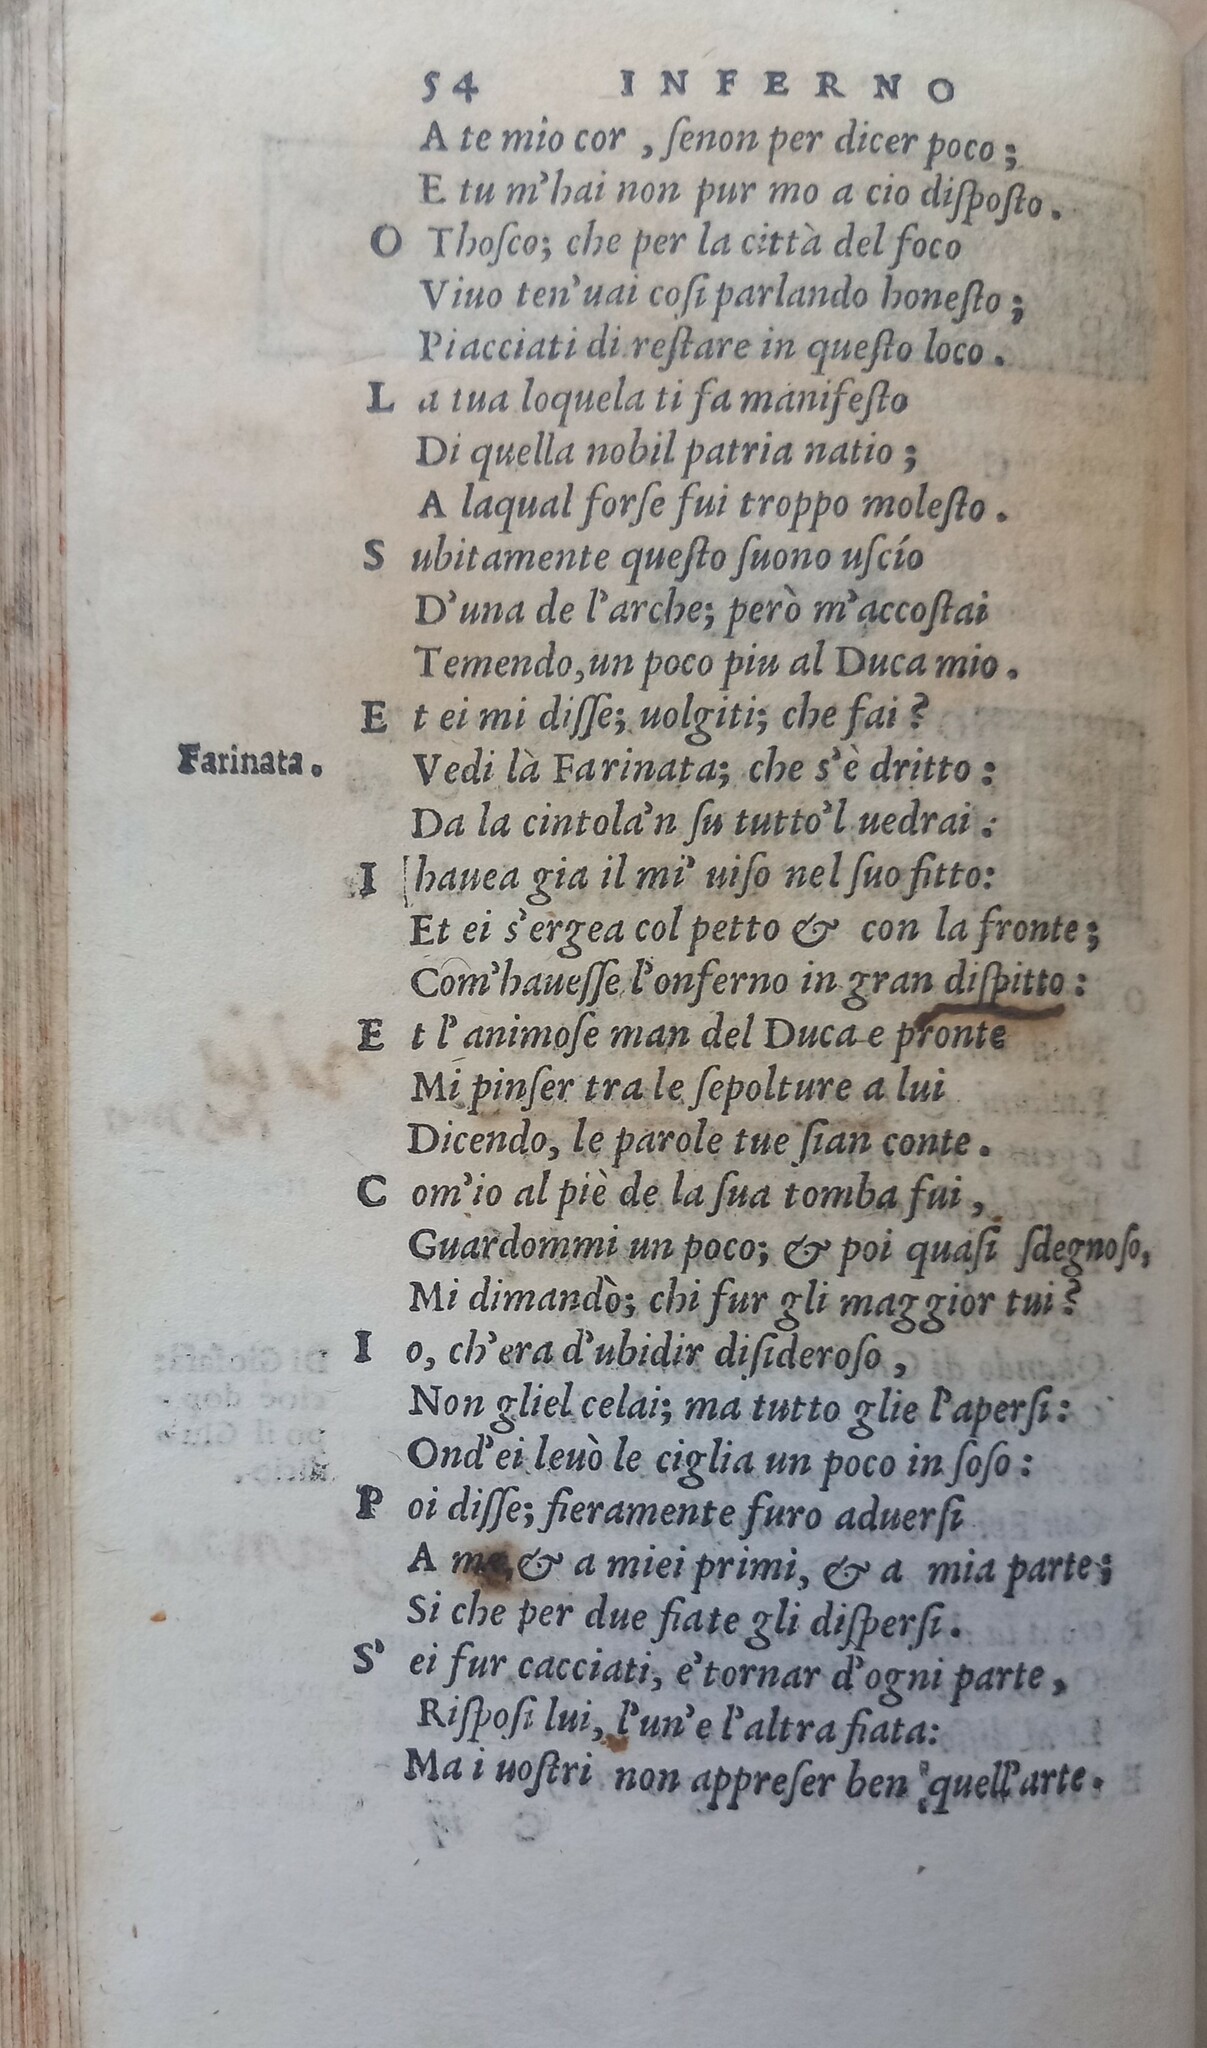 54 INFERNO
A te mio cor , ſenon per dicer poco;
E tu m'hai non pur mo a cio diſpoſto.
O Thoſco; che per la città del foco
Viuo ten'uai coſi parlando honeſto;
Piacciati di reſtare in queſto loco.
L a tua loquela ti fa manifeſto
Di quella nobil patria natio;
A laqual forſe fui troppo moleſto.
S ubitamente queſto ſuono uſcío
D'una de l'arche; però m'accoſtai
Temendo, un poco piu al Duca mio.
E t ei mi diſſe; uolgiti; che fai?
Farinata.
Vedi là Farinata; che s'è dritto:
Da la cintola'n ſu tutto'l uedrai:
I hauea gia il mi' uiſo nel ſuo fitto:
Et ei s'ergea col petto & con la fronte;
Com'haueſſe l'onferno in gran diſpitto:
E t l'animoſe man del Duca e pronte
Mi pinſer tra le ſepolture a lui
Dicendo, le parole tue ſian conte.
C om'io al piè de la ſua tomba fui,
Guardommi un poco; & poi quaſi ſdegnoſo,
Mi dimandò; chi fur gli maggior tui?
I o, ch'era d'ubidir diſideroſo,
Non gliel celai; ma tutto glie l'aperſi:
Ond'ei leuò le ciglia un poco in ſoſo:
P oi diſſe; fieramente furo aduerſi
A me, & a miei primi, & a mia parte;
Si che per due fiate gli diſperſi.
S' ei fur cacciati, e'tornar d'ogni parte,
Riſpoſi lui, l'un'e l'altra fiata:
Ma i uoſtri non appreſer ben quell'arte.